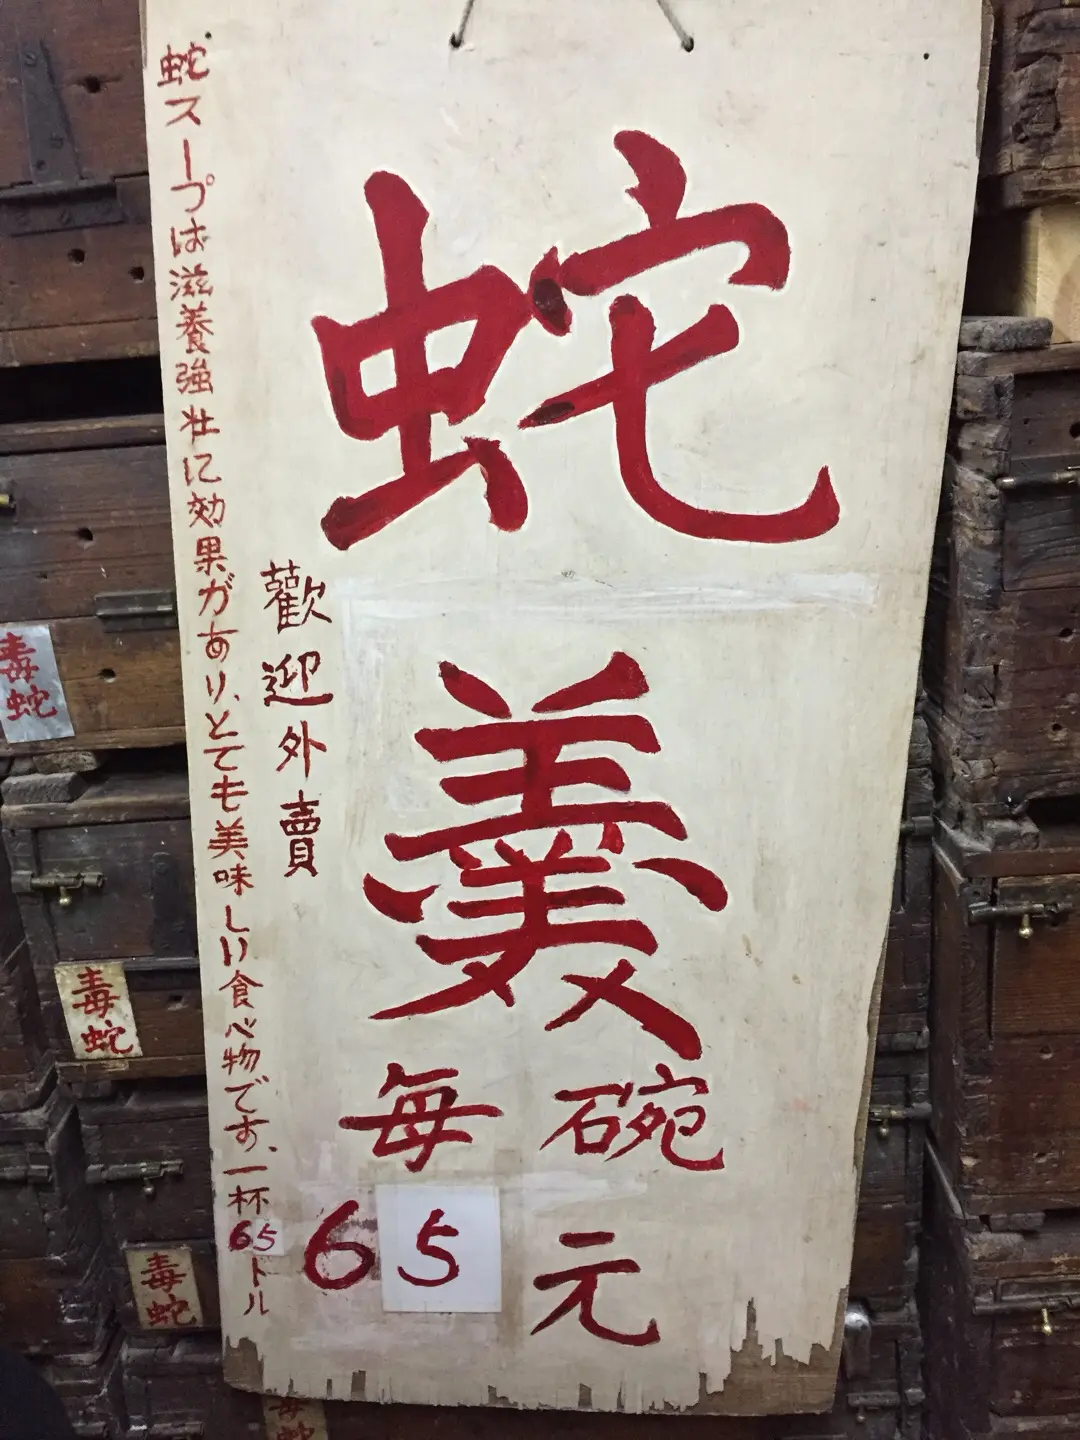 蛇羹
每碗
65元
歡迎外賣
蛇スープは滋養強壮に効果があり、とても美味しい食べ物です、一杯65ドル
毒蛇
毒蛇
毒蛇
毒蛇